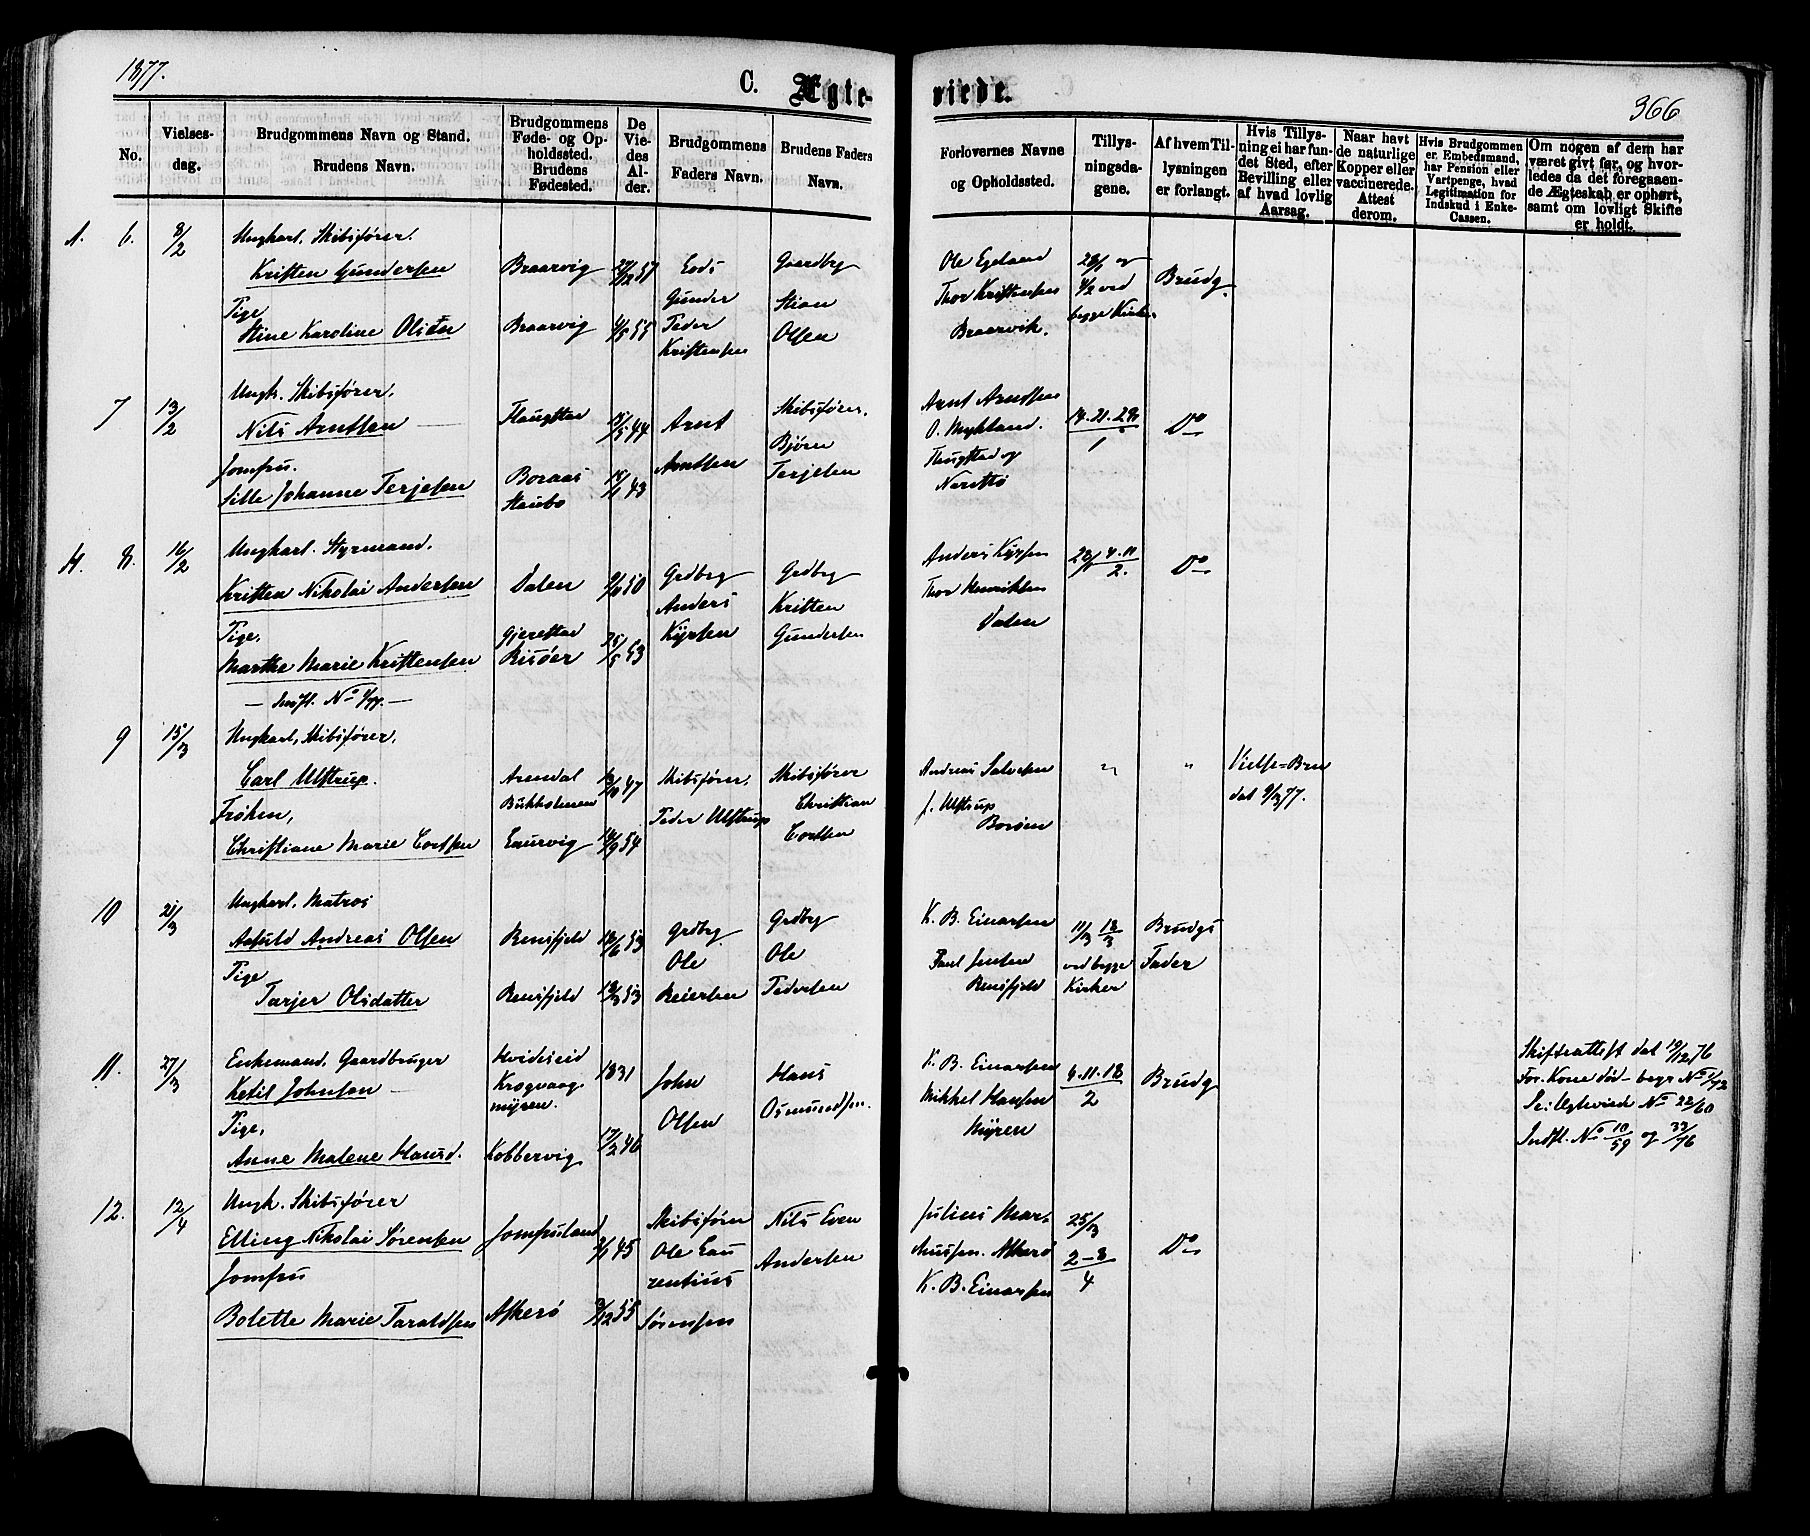 1877.
C. Ægte-
viede.
366
No.
Vielses-
dag.
Brudgommens Navn og Stand.
Brudens Navn.
Brudgommens
Føde- og Op-
holdssted.
Brudens
Fødested.
De
Vie-
des
Al-
der.
Brudgommens
Faders Navn.
Brudens Faders
Navn.
Forlovernes Navne
og Opholdssted.
Tillys-
ningsda-
gene.
Af hvem Til-
lysningen
er forlangt.
Hvis Tillys-
ning ei har fun-
det Sted, efter
Bevilling eller
af hvad lovlig
Aarsag.
Naar havt
de naturlige
Kopper eller
vaccinerede.
Attest
derom.
Hvis Brudgommen
er Embedsmand,
har Pension eller
Vartpenge, hvad
Legitimation for
Indskud i Enke-
Cassen.
Om nogen af dem har
været givt før, og hvor-
ledes da det foregaaen-
de Ægteskab er ophørt,
samt om lovligt Skifte
er holdt.
6.
8/2
Ungkarl. Skibsfører.
Kristen Gundersen
Pige
Stine Karoline Olsen
Braarvig
Braarvig
Gunder
Peder
Kristensen
Gaardbr
Stian
Olsen
Ole Egeland
Thor Kristensen
Braarvik.
28/1 og
4/2 ved
begge Kirker
Brudg.
7
13/2
Ungk. Skibsfører.
Nils Arntsen
Jomfru.
Sille Johanne Terjesen
Boraas
Staubo
15/5 44
15/1 43
Arnt
Arntsen
Skibsfører.
Bjørn
Terjesen
Arnt Arntsen
O. Myhland.
og
14. 21. 28
1
Do
H. 8.
16/2
Ungkarl. Styrmand.
Kristen Nikolai Andersen
Pige,
Marthe Marie Kristensen
Dalen
Gjerestad
Risøer
25/5 53
Grdbr
Anders
Grdbr
Kristen
Gundersen
Thor Henriksen
Dalen
28/1 4. 11
2.
Do
9
15/3
Ungkarl, Skibsfører.
Carl Ulstrup.
Frøken,
Christiane Marie Corssen
Arendal
Bukholmen
Laurvig
Skibsfører.
Peder Ulstrup
Skibsfører
Christian
Corssen
Andreas Salvesen
J. Ulstrup
Borøen
"
"
Vielse-Brev
dat 9/3 77.
10
21/3
Ungkarl. Matros
Aasuld Andreas Olsen
Pige
Tarjer Olsdatter
Rensfjeld
Rensfjeld
Grdbr
Ole
Reiersen
Grdbr
Ole
Pedersen
K. B. Einarsen
Paul Jensen
Rensfjeld
11/3 18/3
ved begge
Kirker
Brudgs
Fader
11.
27/3
Enkemand, Gaardbruger
Ketil Johnsen
Pige,
Anne Malene Hansd.
Hvideseid
Krogvaag-
myren.
Kobbervig
1831
17/2 46
John
Olsen
Hans
Osmundsen.
K. B. Einarsen
Mikkel Hansen
Myren
4. 11. 18
2
Brudg
Skifteattest dat 19/12 76
For. Kone død - begr No 1/72
Se: Egteviede No 22/60
Indfl. No 10/59 og 33/76
12.
12/4
Ungk. Skibsfører
Elling Nikolai Sørensen
Jomfru
Bolette Marie Taraldsen
Jomfruland
Askerø
Skibsfører
Ole Lau
rentius
Sørensen
Nils Even
Andersen
Julius Mar-
thussen. Askerø
K. B. Einarsen
25/3
2-8
4
Do